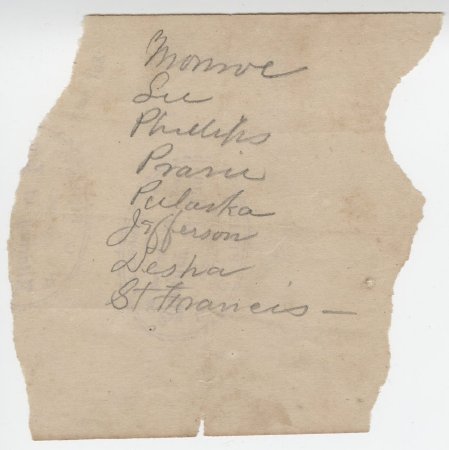 Monroe
Lee
Phillips
Prarie
Pulaska
Jefferson
Desha
St Francis —